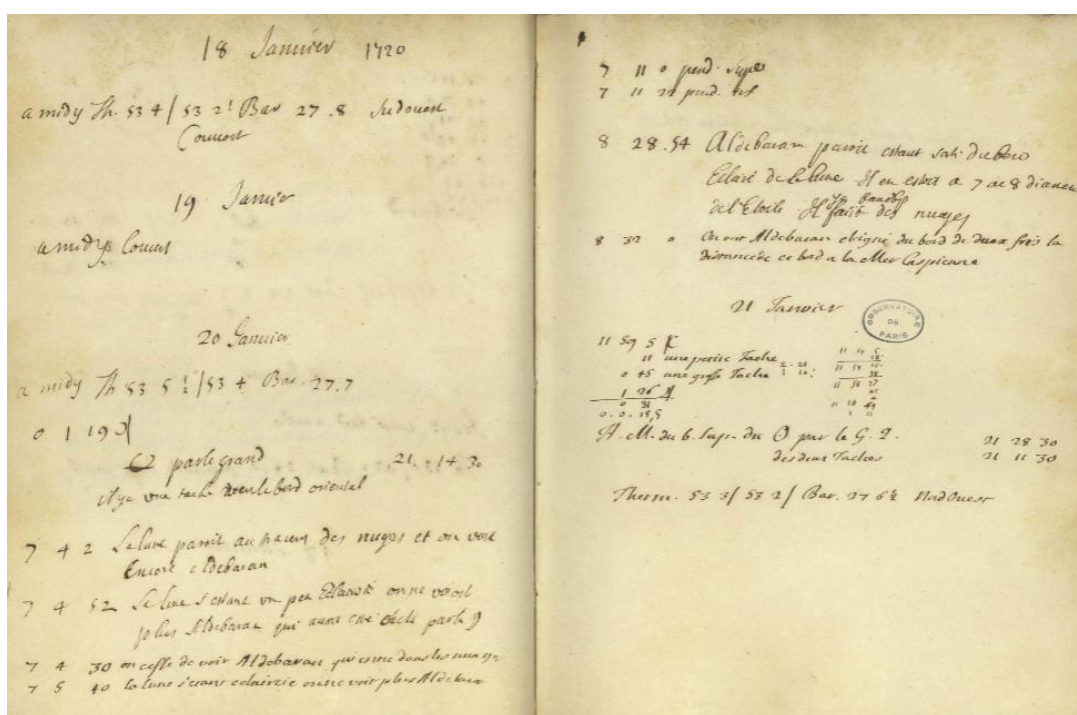 18 Janvier 1720
a midy Th. 53 4 / 53 2! Bar 27.8 Sudouest
Couvert
19 Janvier
a midy Couvert
20 Janvier
a midy Th 53 5 ½ / 53 4 Bar. 27.7
0 1 19
par le grand 21. 14 30
il y a une tache vers le bord oriental
7 4 2 La lune paroit au travers des nuages et on voit
Encore Aldebaran
7 4 52 La lune s'estant un peu Eclaircie on ne voioit
plus Aldebaran qui avoit esté caché par la
7 4 30 on cesse de voir Aldebaran qui entre dans les nuages
7 5 40 la lune s'étant eclaircie on ne voit plus Aldebaran
7 11 0 pend. supe
7 11 22 pend.
8 28.54 Aldebaran paroit estant sorti du bord
Eclairé de la Lune Il en estoit a 7 ou 8 diametres
de l'Etoile Il faut des nuages
8 32 0 On voit Aldebaran eloigné du bord de deux fois la
distance de ce bord a la Mer Caspienne
21 Janvier
OBSERVATOIRE DE PARIS
11 59 5
11 une petite Tache 2. 21
0 45 une grosse Tache
1 26
0 31
0. 0. 15,5
H. M. du b. Sup. du par le G. 2. 21 28 30
des deux Taches 21 11 30
Therm. 53 3 / 53 2 / Bar. 27 6½ Nord Ouest